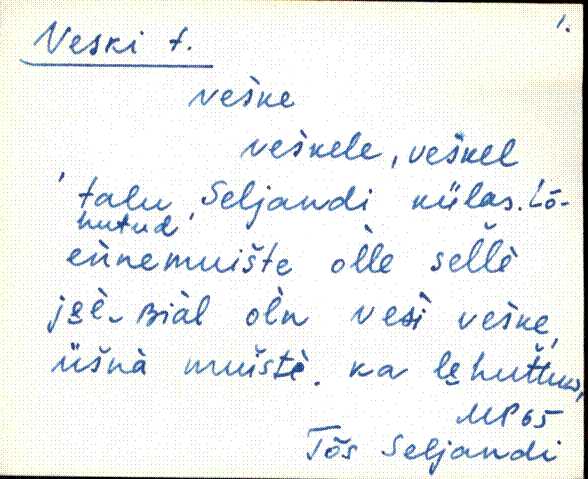 1.
Neski t.
veške
veškele, veškel
'talu Seljandi külas. Lõ-
hutud
eǹnemuište òlle sellè
jeè- Biàl oĺn vesì veške,
üšnà muištè. ka lehuttud,
MP 65
Tõs Seljandi